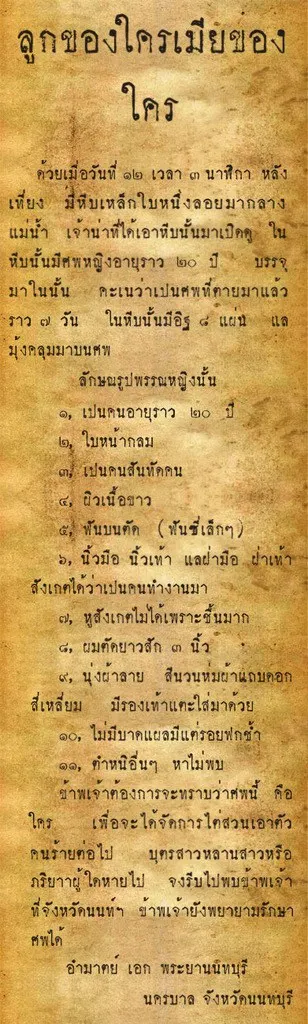 ลูกของใครเมียของ
ใคร
ด้วยเมื่อวันที่ ๑๒ เวลา ๓ นาฬิกา หลัง
เที่ยง มีหีบเหล็กใบหนึ่งลอยมากลาง
แม่น้ำ เจ้าน่าที่ได้เอาหีบนั้นมาเปิดดู ใน
หีบนั้นมีศพหญิงอายุราว ๒๐ ปี บรรจุ
มาในนั้น คะเนว่าเปนศพที่ตายมาแล้ว
ราว ๗ วัน ในหีบนั้นมีอิฐ ๘ แผ่น แล
มุ้งคลุมมาบนศพ
ลักษณรูปพรรณหญิงนั้น
๑, เปนคนอายุราว ๒๐ ปี
๒, ใบหน้ากลม
๓, เปนคนสันทัดคน
๔, ผิวเนื้อขาว
๕, ฟันบนตัด (ฟันซี่เล็กๆ)
๖, นิ้วมือ นิ้วเท้า แลฝ่ามือ ฝ่าเท้า
สังเกตได้ว่าเปนคนทำงานมา
๗, หูสังเกตไม่ได้เพราะขึ้นมาก
๘, ผมตัดยาวสัก ๓ นิ้ว
๙, นุ่งผ้าลาย สีนวนห่มผ้าแถบดอก
สี่เหลี่ยม มีรองเท้าแตะใส่มาด้วย
๑๐, ไม่มีบาดแผลมีแต่รอยฟกช้ำ
๑๑, ตำหนิอื่นๆ หาไม่พบ
ข้าพเจ้าต้องการจะทราบว่าศพนี้ คือ
ใคร เพื่อจะได้จัดการไต่สวนเอาตัว
คนร้ายต่อไป บุตรสาวหลานสาวหรือ
ภริยาาผู้ใดหายไป จงรีบไปพบข้าพเจ้า
ที่จังหวัดนนท์ฯ ข้าพเจ้ายังพยายามรักษา
ศพได้
อำมาตย์ เอก พระยานนทบุรี
นครบาล จังหวัดนนทบุรี